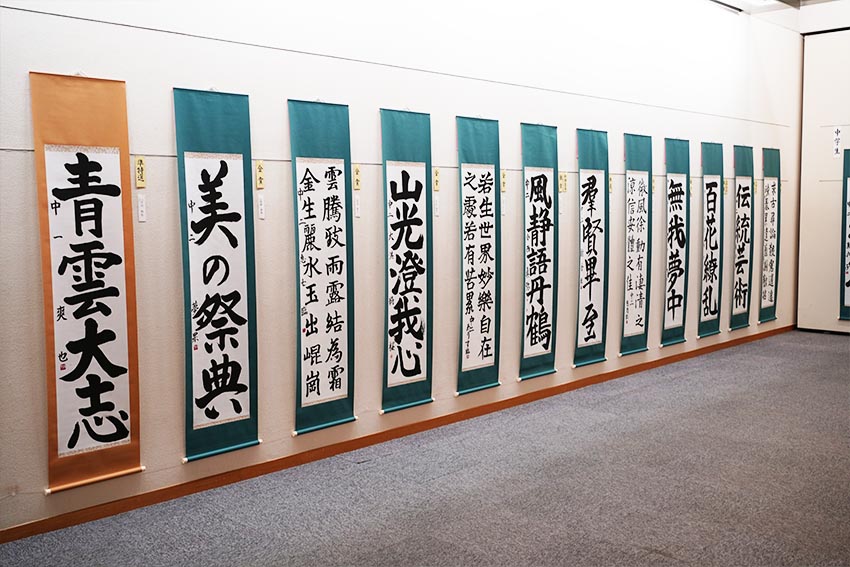 青雲大志
中一 爽也
準特選
美の祭典
中二
金賞
雲騰致雨露結為霜
金生麗水玉出崐岡
金賞
山光澄我心
若生世界妙樂自在
之處若有苦累
風静語丹鶴
羣賢畢至
微風徐動有凄清之
涼信安體之佳
無我夢中
百花繚乱
伝統芸術
求古尋論散慮逍遥
中学生